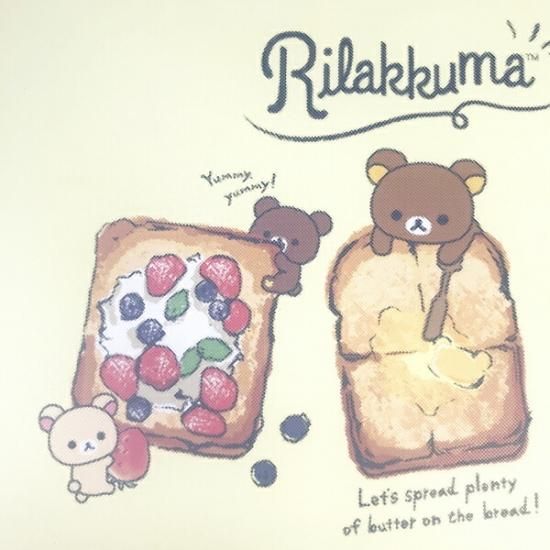 Rilakkuma™
Yummy,
yummy!
Let's spread plenty
of butter on the bread!